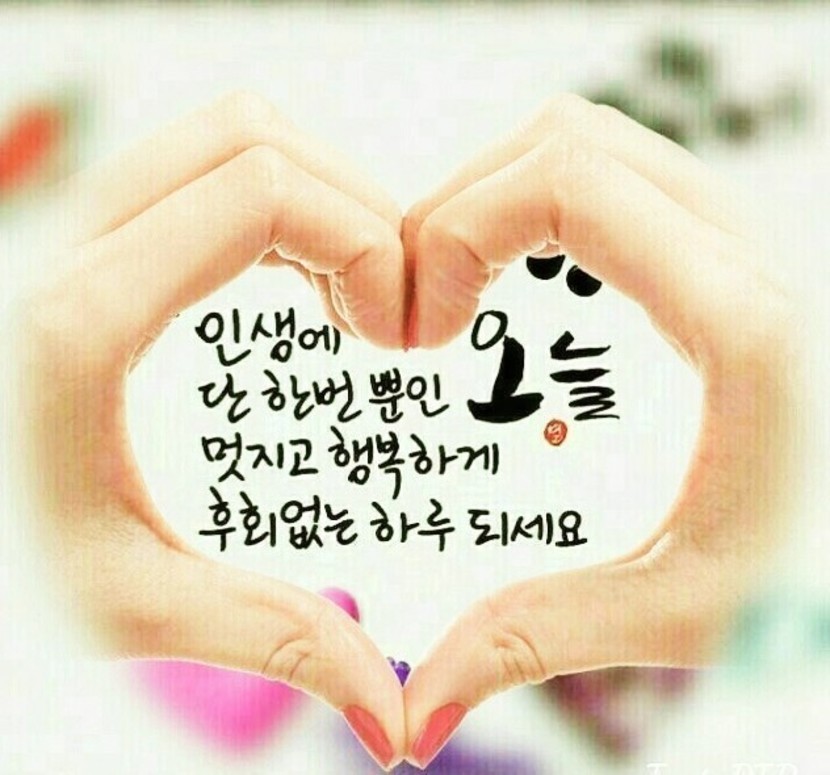 인생에
단 한번 뿐인 오늘
멋지고 행복하게
후회없는 하루 되세요